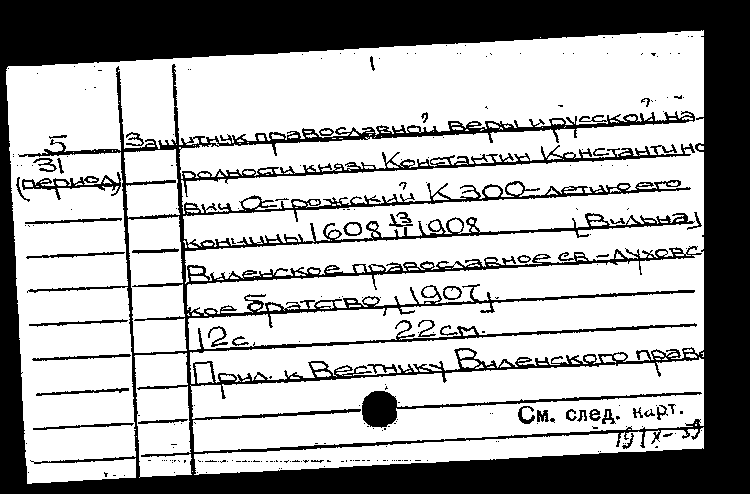 5 Защитник православной веры и русской на-
31 родности князь Константин Константино
(период) вич Острожский К 300-летию его
кончины 1608 13/II 1908 [Вильна]
Виленское православное св.-духовс-
кое братство, [1907].
12с. 22см.
Прил. к Вестнику Виленского право
См. след. карт.